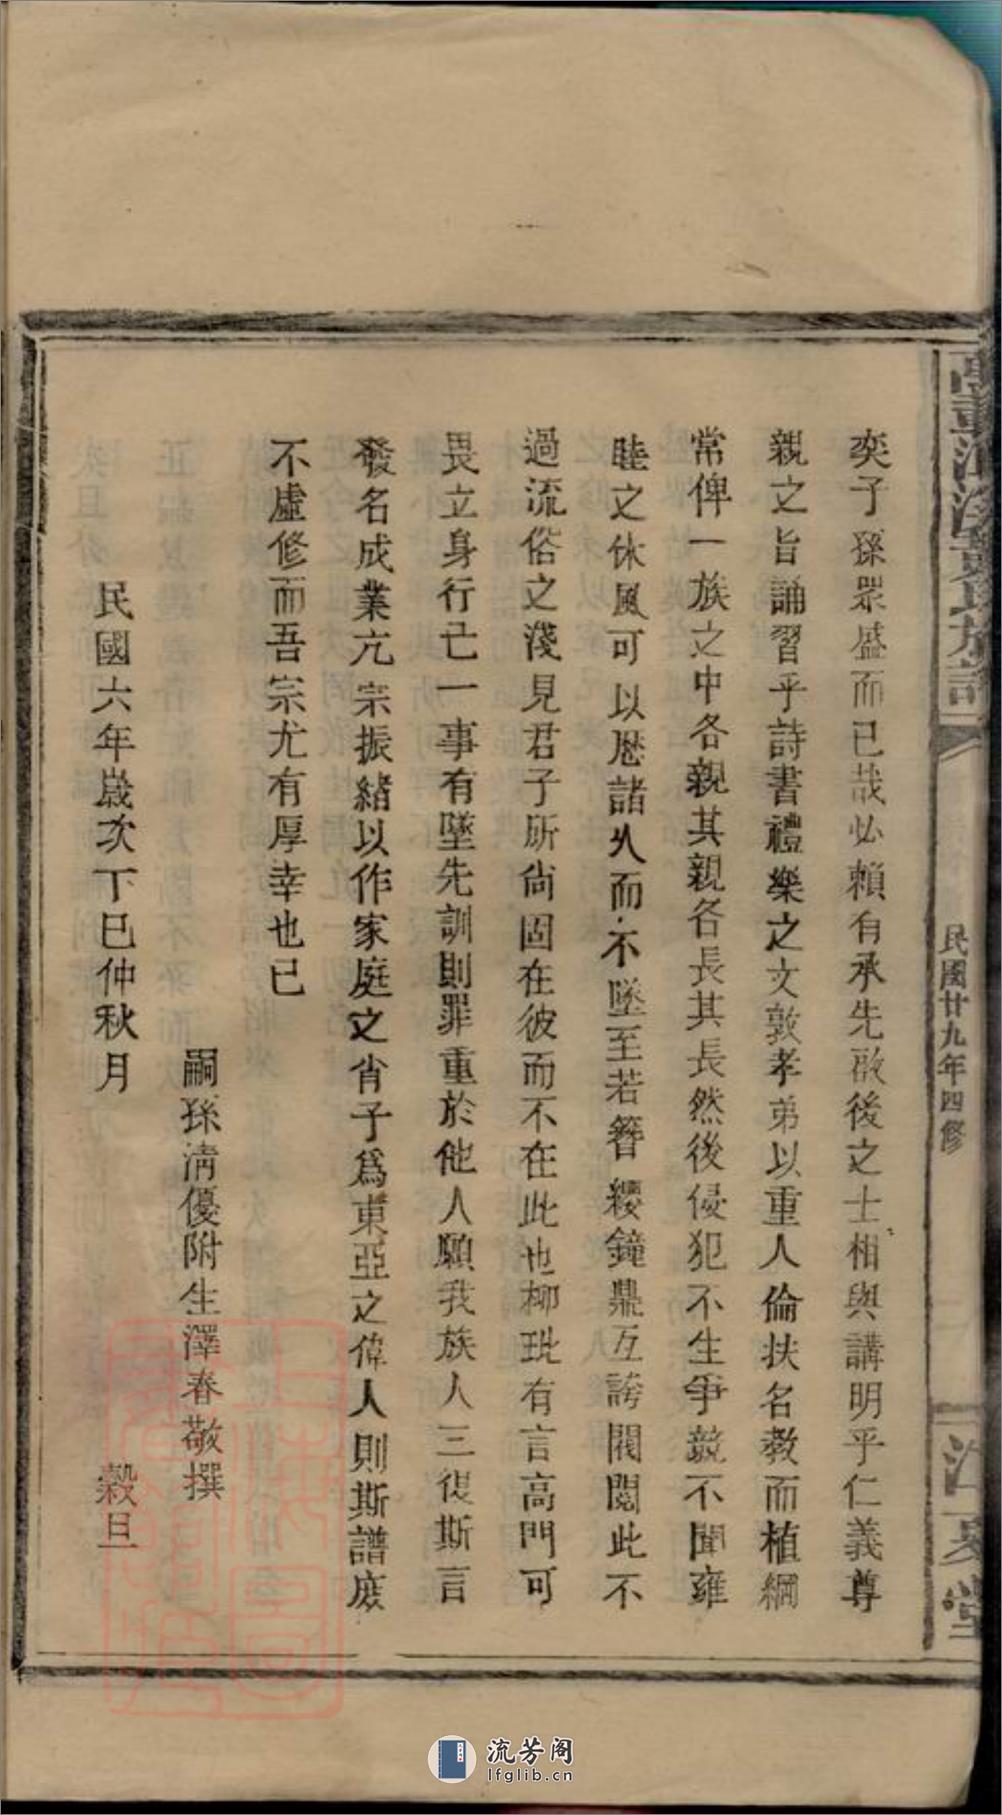 奕子孫眾盛而已哉必賴有承先啟後之士相與講明乎仁義尊
親之旨誦習乎詩書禮樂之文敦孝弟以重人倫扶名教而植綱
常俾一族之中各親其親各長其長然後侵犯不生爭競不聞雍
睦之休風可以歷諸久而不墜至若簪纓鐘鼎互誇閥閱此不
過流俗之淺見君子所尙固在彼而不在此也柳玭有言高門可
畏立身行亡一事有墜先訓則罪重於他人願我族人三復斯言
發名成業亢宗振緒以作家庭之肖子爲東亞之偉人則斯譜庶
不虛修而吾宗尤有厚幸也已
嗣孫淸優附生澤春敬撰
民國六年歲次丁巳仲秋月 穀旦
民國廿九年四修
流芳阁
lfglib.cn